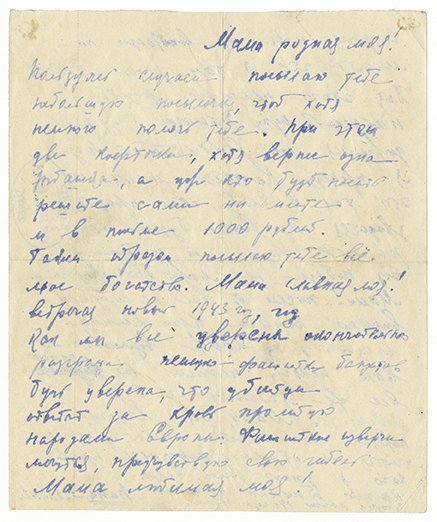 Мама родная моя!
Пользуясь случаем посылаю тебе
небольшую посылку, чтоб хотя
немного помочь тебе. При этом
две , хотя вернее одна
, а кто будет носить
решите сами на месте
и в 1000 рублей.
Таким образом посылаю тебе всё
мое богатство. Мама славная моя!
встречая новый 1943 год, год
как мы все уверены окончательно
разгрома немецко-фашистских бандитов
будь уверена, что убийцы
ответят за кровь пролитую
народами Европы. Фашистские изверги
мечутся, предчувствуя свою гибель
Мама любимая моя!